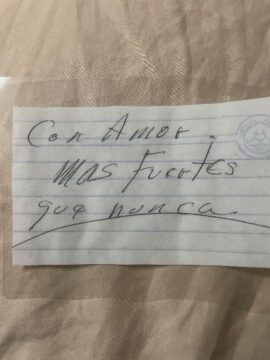 Con Amor.
mas fuertes
que nunca